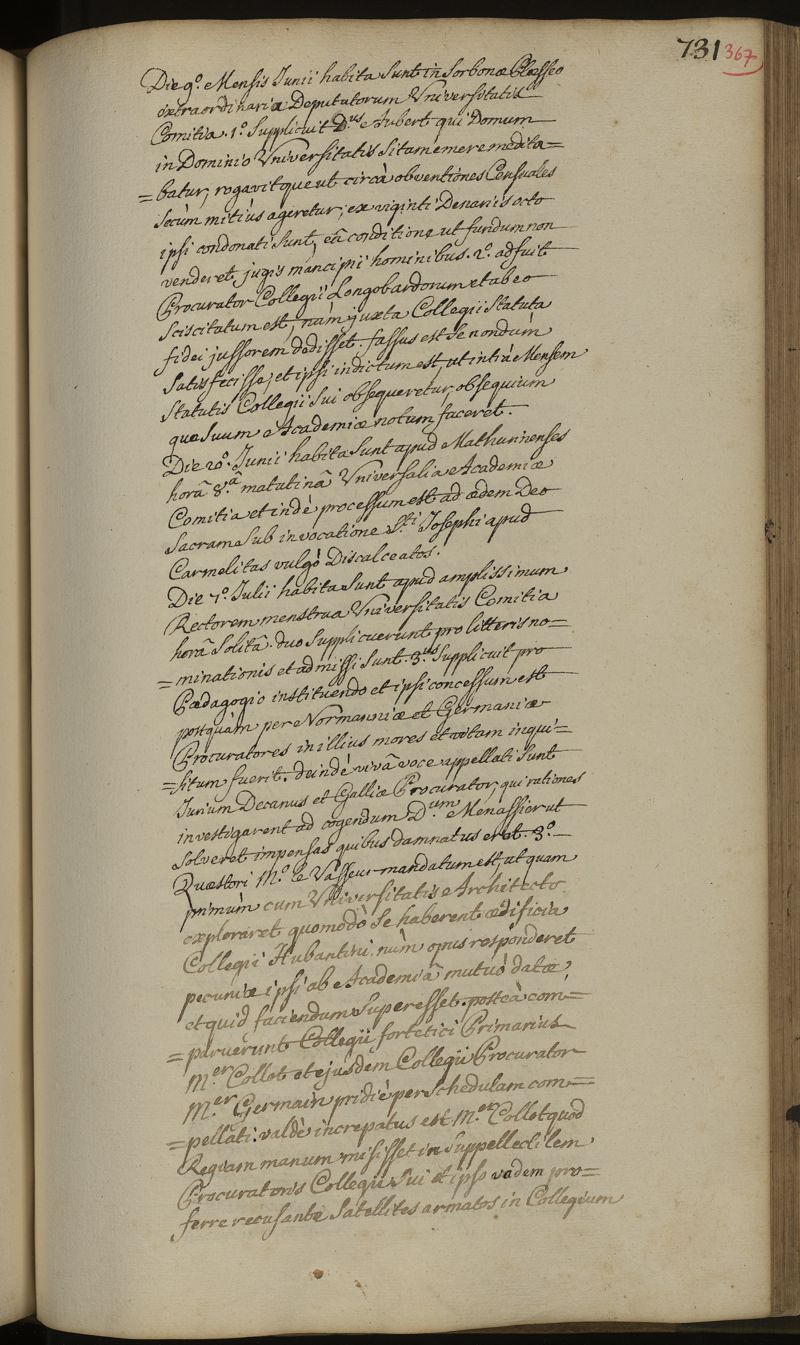 731 367
Die 9.º Mensis Junii habita sunt in Sorbonæ Plæsseo
extraordinaria Deputatorum Universitatis
Comitia. 1.º Supplicuit D.us Aubert qui Domum
in Dominio Universitatis sitam emere medita=
=batur, rogavitque ut circà obventiones Censuales
secùm mitiùs ageretur; ex viginti Denariis octo
ipsi condonati sunt, eâ conditione ut fundum non
venderet jugis mancipii hominibus. 2.º adfuit
Procurator Collegii Longobardorum et ab eo
Sciscitatum est, nùm juxta Collegii Statuta
fidei jussorem dedisset. fassus est se nondum
satisfecisse, et ipsi indictum est, ut intrà Mensem
Statutis Collegii Sui obsequeretur, obsequium
que suum Academiæ notum faceret.
Die 20.º Junii habita sunt apud Mathurinenses
horâ 8.â matutinâ Universalia Academiæ
Comitia et indè processum est ad ædem Deo
Sacram sub invocatione S.ti Josephi apud
Carmelitas vulgò Discalceatos.
Die 7.º Julii habita sunt apud amplissimum
Rectorem menstrua Universitatis Comitia
horâ solitâ. duo Supplicuerunt pro litteris no=
=minationis et admissi sunt. 3.us Supplicuit pro
Pædagogio instituendo et ipsi concessum est
postquàm per Normanniæ et Germaniæ
Procuratores in illius mores et vitam inqui=
=situm fuerit. deindè vivâ voce appellati sunt
Jurium Decanus et Galliæ Procurator, qui rationes
investigarent ad cogendum D.um Menassier ut
solveret impensas quibus damnatus erat. 3.º
Quæstori M.º le Vasseur mandatum est, ut quam
primùm cum Universitatis Architecto
exploraret quomodò se haberent ædificia
Collegii Hubantini, nùm opus responderet
pecuniæ ipsi ab Academiâ mutuò datæ,
et quid faciendum Superesset. posteà com=
=paruerunt Collegii fortetici Primarius
M.er Collot et ejusdem Collegii Procurator
M.er Germain pridiè per Schedulam com=
=pellati. valdè increpatus est M.er Collot quod
Regiam manum misisset in Suppellectilem
Procuratoris Collegii Sui et ipso vadem pro=
ferre recusante Satellites armatos in Collegium